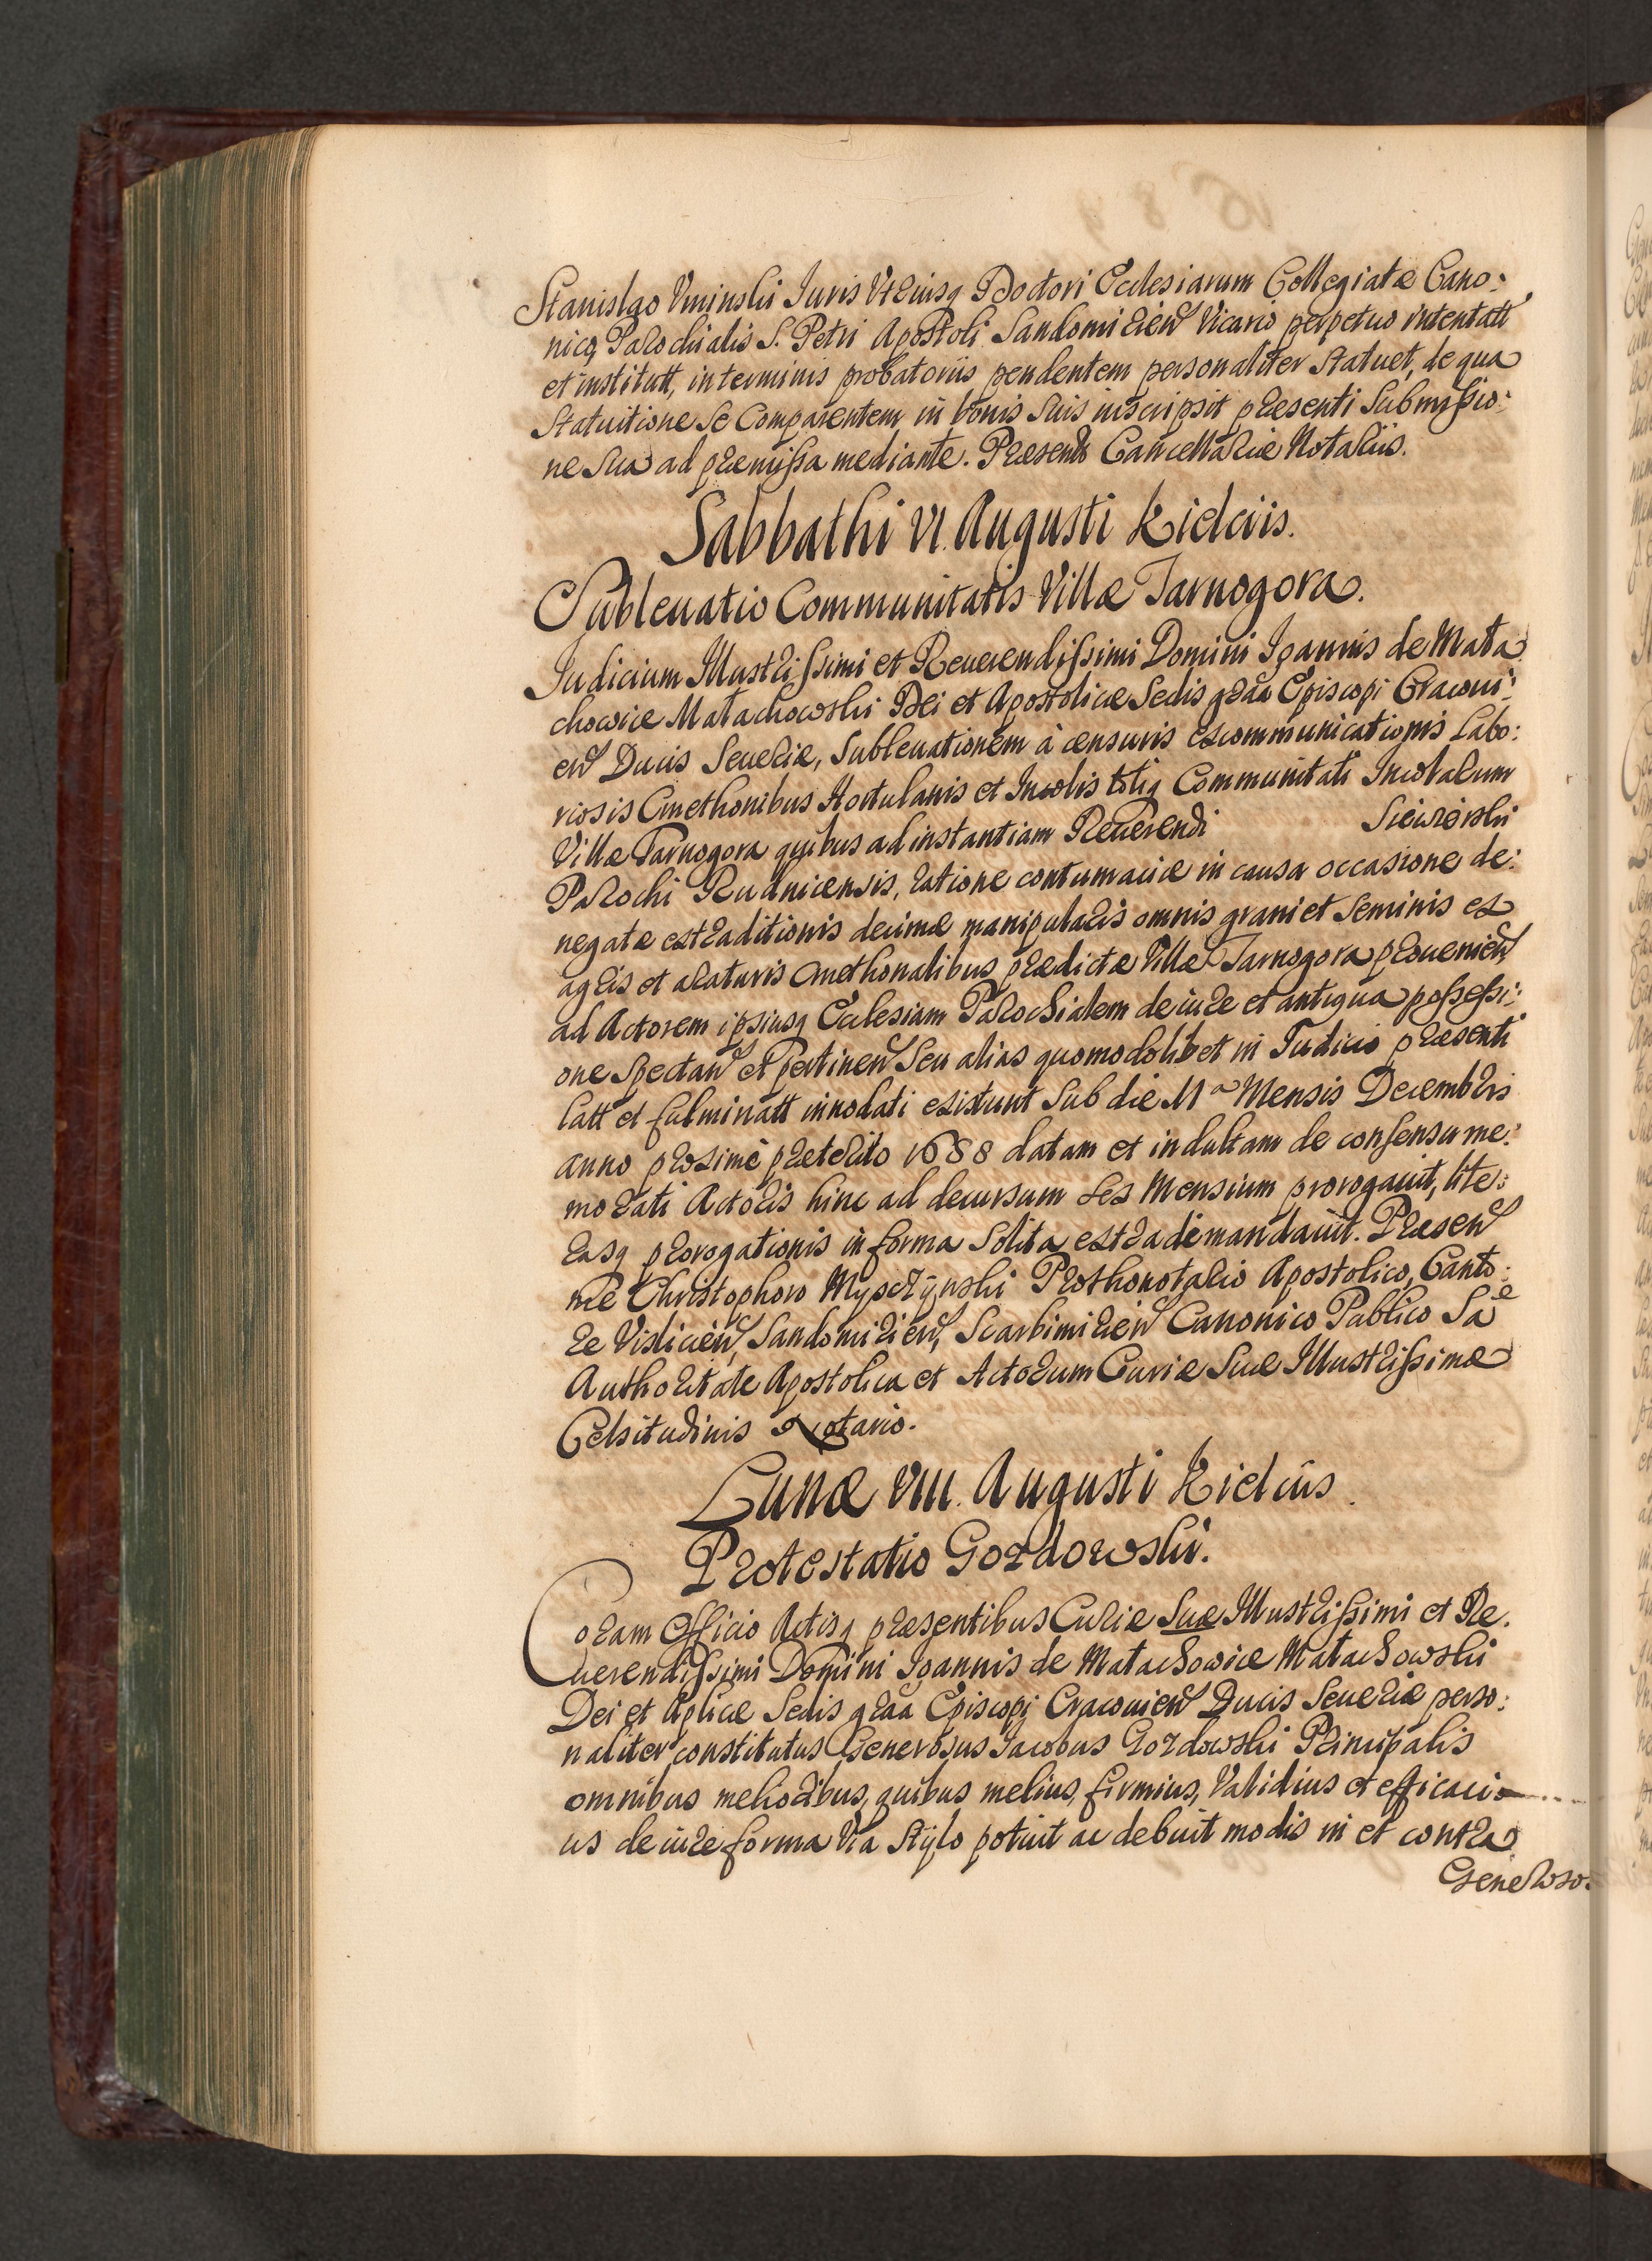 Stanislao Uminski Juris Utriusq Doctori Ecclesiarum Collegiatæ Cano:
nico, Parochialis S. Petri Apostoli Sandomirien Vicario perpetuo intentatt
et institutt, in terminis probatoriis pendentem personaliter statuet, de qua
statuitione se Comparentem in bonis suis inscripsit præsenti submissio:
ne sua ad præmissa mediante. Præsentt Cancellariæ Notariis.
Sabbathi VI. Augusti Kielciis.
Subleuatio Communitatis Villæ Tarnogora.
Judicium Illustrissimi et Reuerendissimi Domini Joannis de Mała
chowice Małachowski Dei et Apostolicæ Sedis grãa Episcopi Cracoui:
en Ducis Seueriæ, Subleuationem à censuris excommunicationis Labo:
riosis Cmethonibus Hortulanis et Incolis totiq Communitati Incolarum
Villæ Tarnogora quibus ad instantiam Reuerendi Sieirinski
Parochi Rudnicensis, ratione contumaciæ in causa occasione de:
negatæ extraditionis decimæ manipularis omnis grani et seminis ex
agris et araturis Cmethonalibus prædictæ Villæ Tarnogora prouenien
ad Actorem ipsiusq Ecclesiam Parochialem de iure et antiqua possessi:
one spectan et pertinen seu alias quomodolibet in Judicio præsenti
latt et fulminatt innodati existunt sub die 11a Mensis Decembris
anno proxime præterito 1688 datam et indultam de consensu me:
morati Actoris hinc ad decursum sex Mensium prorogauit, lite:
rasq prorogationis in forma solita extradi mandauit. Præsen
me Christophoro Myszczynski Prothonotario Apostolico, Canto:
re Vislicien, Sandomirien, Scarbimirien Canonico Publico Sã
Authoritate Apostolica et Actorum Curiæ Suæ Illustrissimæ
Celsitudinis Notario.
Lunæ VIII. Augusti Kielciis.
Protestatio Gozdowski.
Coram Officio Actisq præsentibus Curiæ Suæ Illustrissimi et Re.
uerendissimi Domini Joannis de Małachowice Małachowski
Dei et Aplicæ Sedis grãa Episcopi Cracouien Ducis Seueriæ perso:
naliter constitutus Generosus Jacobus Gozdowski Principalis
omnibus melioribus, quibus melius, firmius, validius et efficaci
us de iure forma via stylo potuit ac debuit modis in et contra
Generoso: